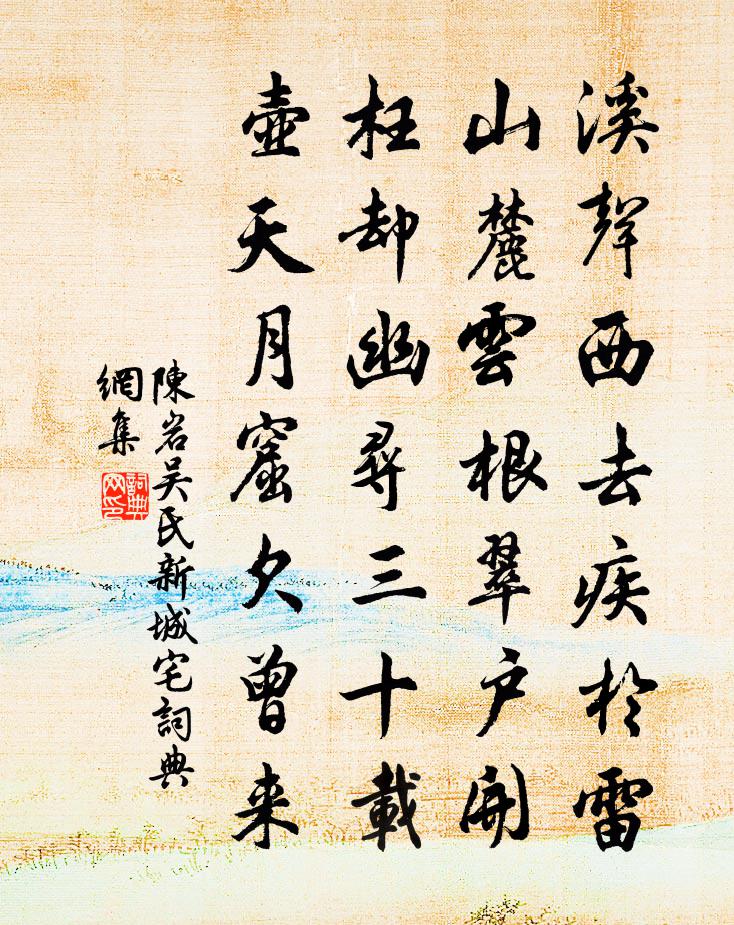 溪聲西去疾於雷
山麓雲根翠戶開
枉却幽尋三十載
壺天月窟欠曾来
陳岩吴氏新城宅詞典
網集
詞典网印